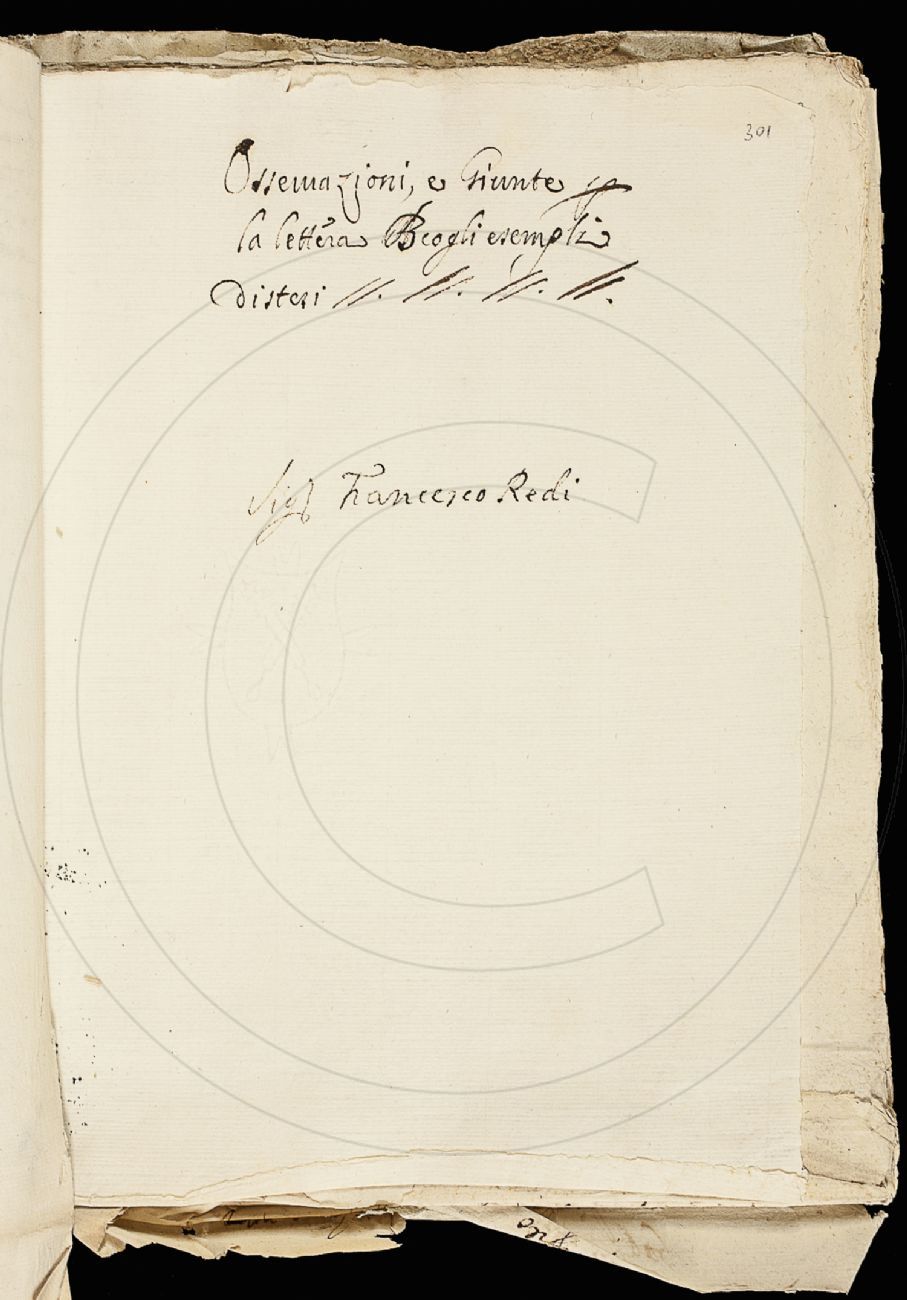 301
Osservazioni, e Giunte p
la lettera B cogli esempli
distesi //. //. //. //.
Sigr Francesco Redi